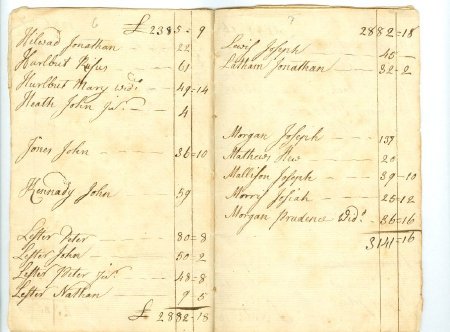 6
£ 2385-9
Hilead Jonathan - 22
Hurlbut Rufus - 61
Hurlbut Mary wid: - 49=14
Heath John Jur. - 4
Jones John - 36=10
Kennady John 59
Lester Peter - 80=8
Lester John - 50=2
Lester Peter Jur. - 48=8
Lester Nathan - 9=5
£ 2882-18
7
2882=18
Lewis Joseph - 45 -
Latham Jonathan - 32-2
Morgan Joseph - 137
Mathews - 20
Mallison Joseph - 39-10
Morris Josiah - 25=12
Morgan Prudence Wid: - 36=16
3141=16